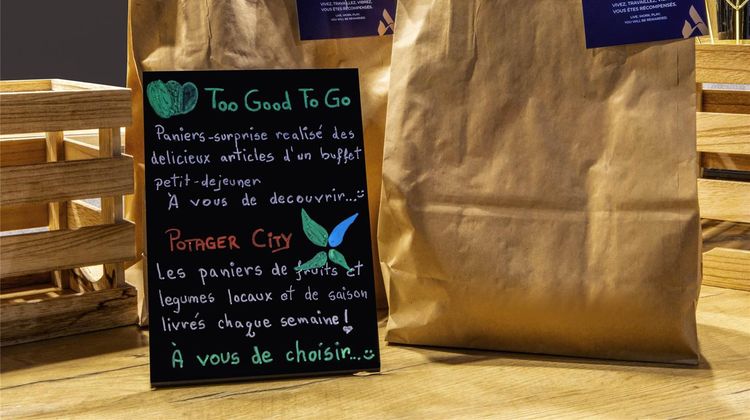 VIVEZ, TRAVAILLEZ, VIBREZ,
VOUS ÊTES RÉCOMPENSÉS.
LIVE, WORK, PLAY,
YOU WILL BE REWARDED.
VIVEZ, TRAVAILLEZ, VIBREZ,
VOUS ÊTES RÉCOMPENSÉS.
LIVE, WORK, PLAY,
YOU WILL BE REWARDED.
Too Good To Go
Paniers-surprise realisé des
delicieux articles d'un buffet
petit-dejeuner
À vous de decouvrir...
POTAGER CITY
Les paniers de fruits et
legumes locaux et de saison
livrés chaque semaine!
À vous de choisir...